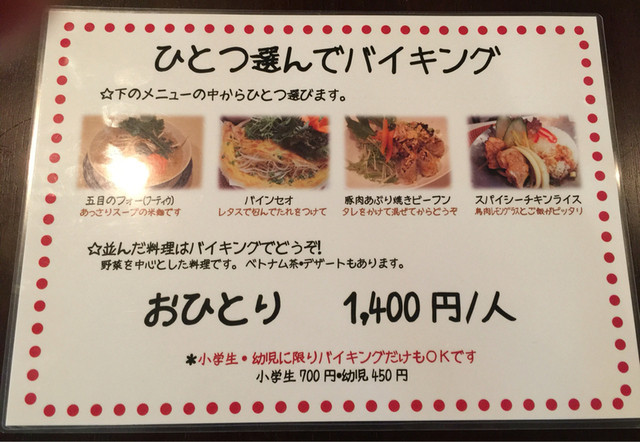 ひとつ選んでバイキング
☆下のメニューの中からひとつ選びます。
五目のフォー(フーティウ)
あっさりスープの米麺です
バインセオ
レタスで包んでたれをつけて
豚肉あぶり焼きビーフン
タレをかけて混ぜてからどうぞ
スパイシーチキンライス
鳥肉レモングラスとご飯がピッタリ
☆並んだ料理はバイキングでどうぞ!
野菜を中心とした料理です。ベトナム茶・デザートもあります。
おひとり 1,400円/人
*小学生・幼児に限りバイキングだけもOKです
小学生700円・幼児450円